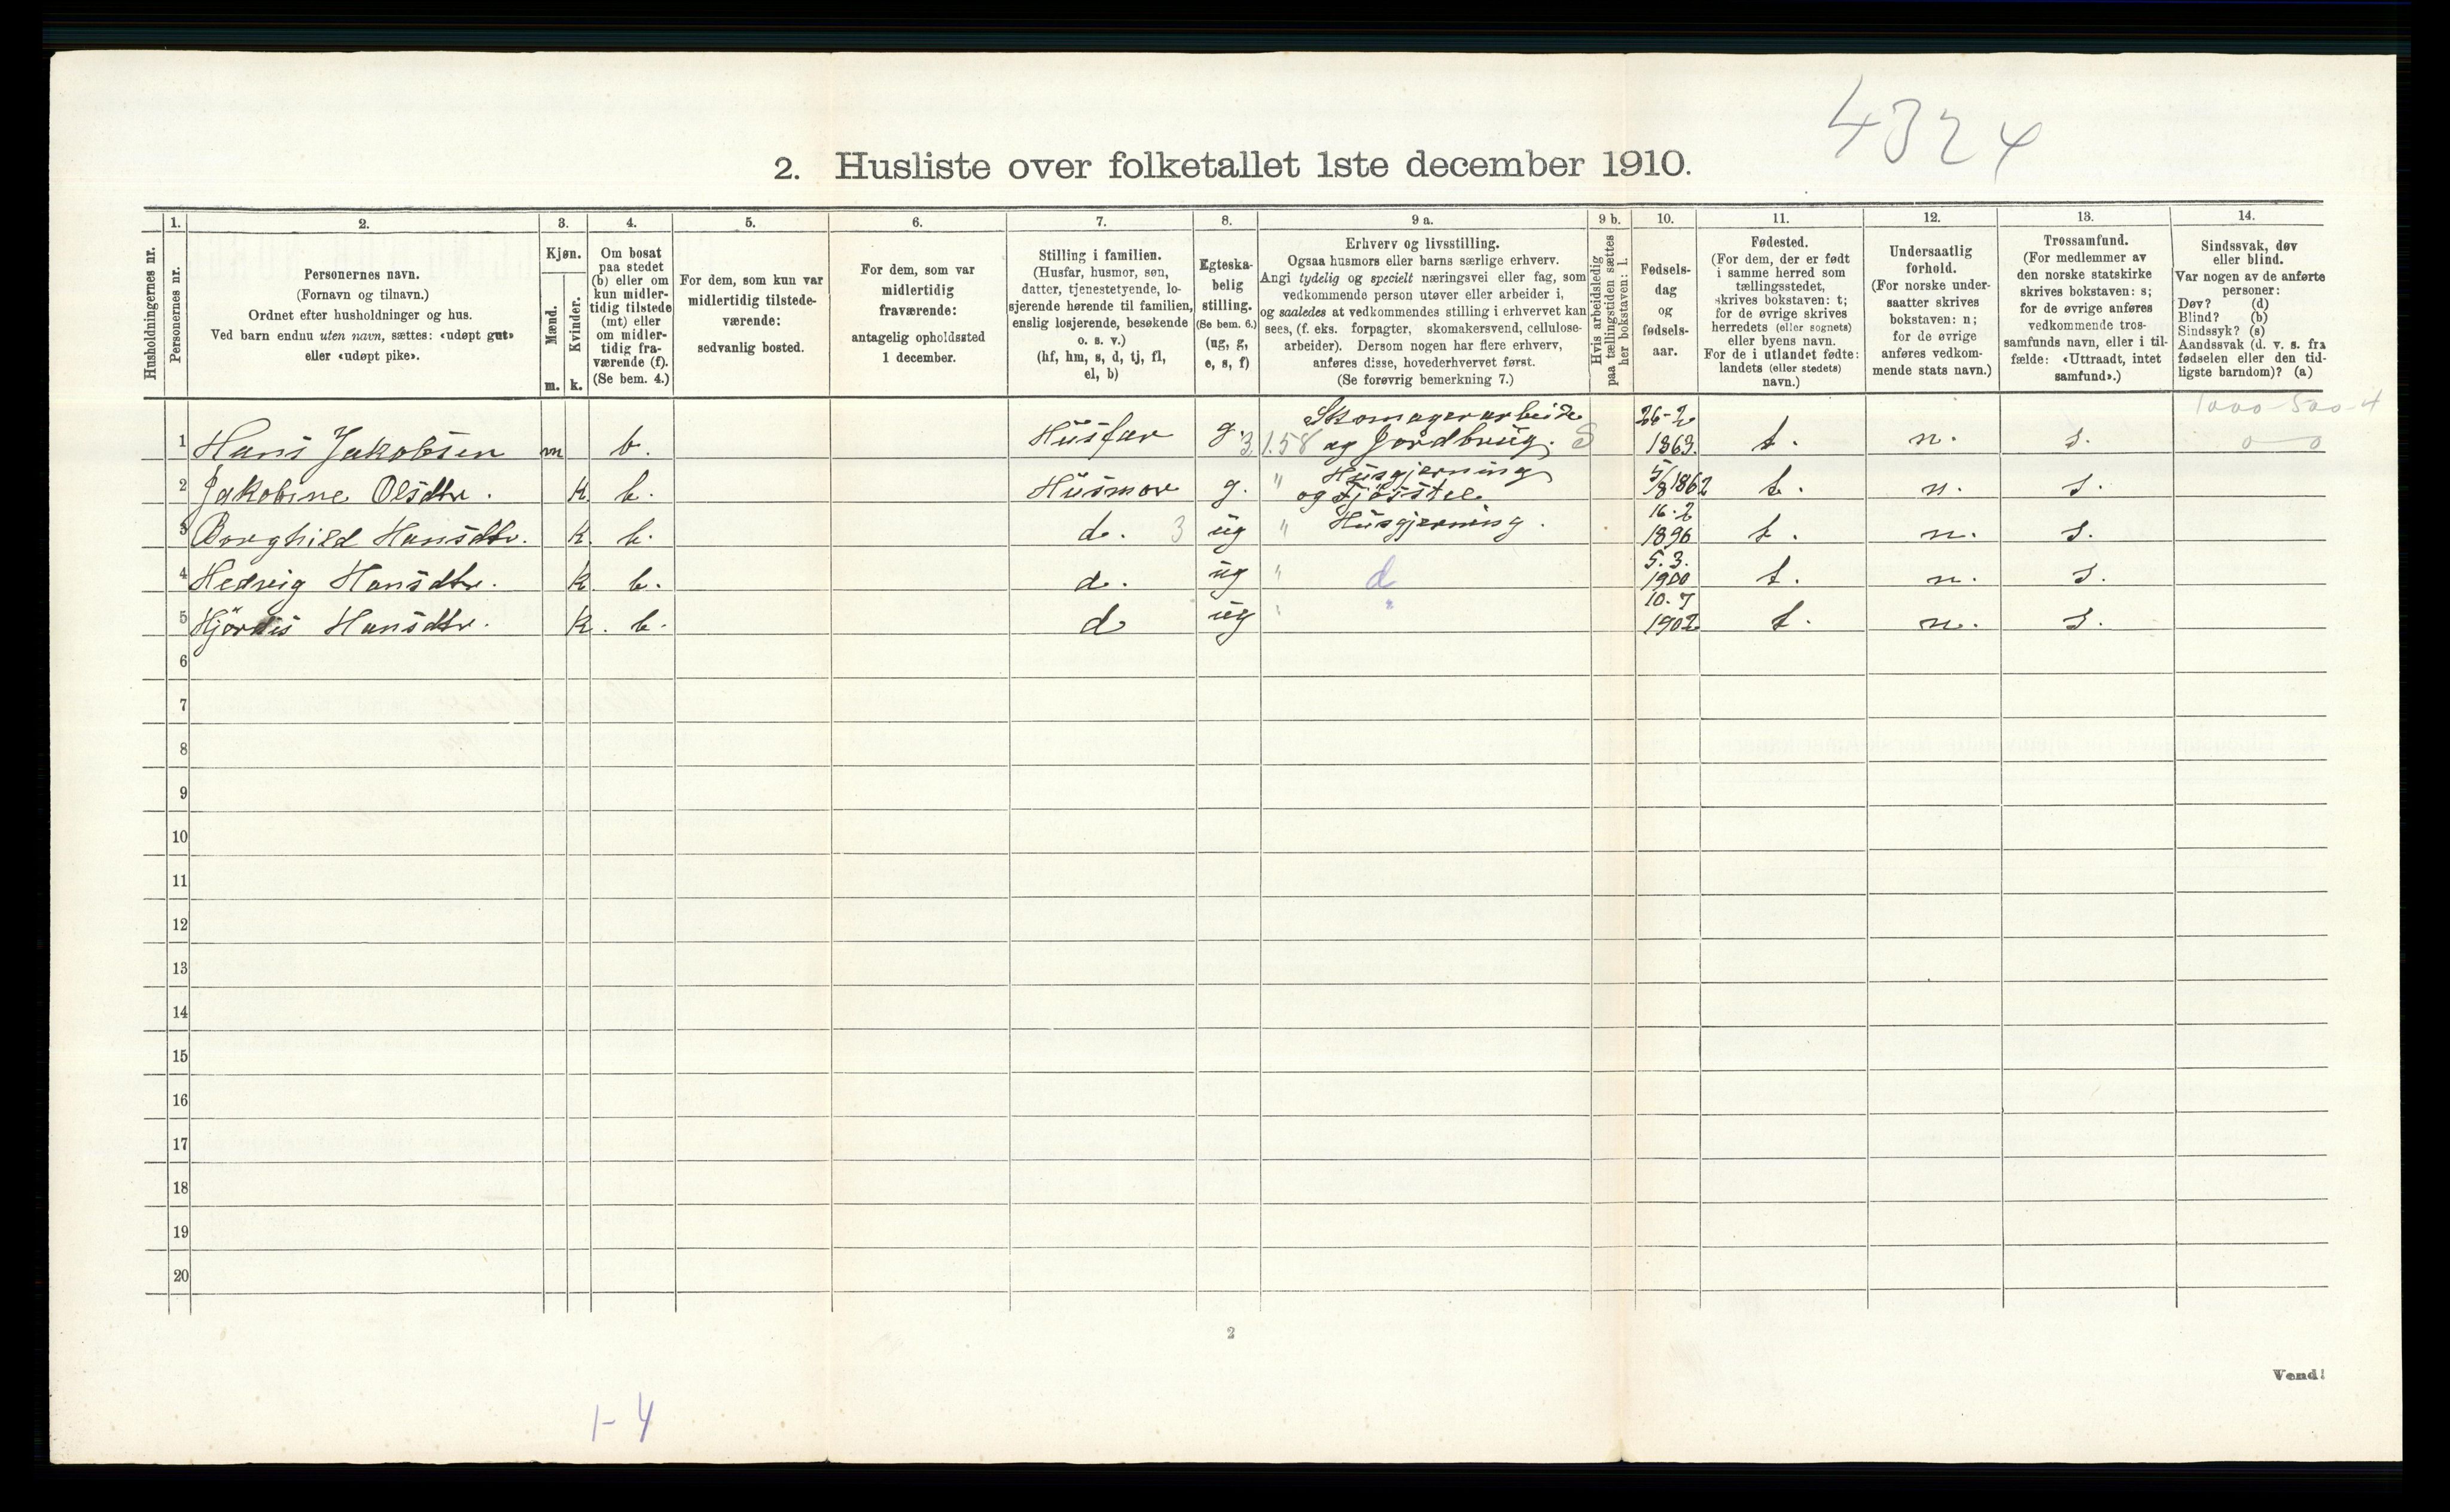 4324
2. Husliste over folketallet 1ste december 1910.
1. 2. 3. 4. 5. 6. 7. 8. 9 a. 9 b. 10. 11. 12. 13. 14.
Husholdningernes nr.
Personernes nr.
Personernes navn.
(Fornavn og tilnavn.)
Ordnet efter husholdninger og hus.
Ved barn endnu uten navn, sættes: «udøpt gut»
eller «udøpt pike».
Kjøn.
Mænd.
Kvinder.
m. k.
Om bosat
paa stedet
(b) eller om
kun midler-
tidig tilstede
(mt) eller
om midler-
tidig fra-
værende (f).
(Se bem. 4.)
For dem, som kun var
midlertidig tilstede-
værende:
sedvanlig bosted.
For dem, som var
midlertidig
fraværende:
antagelig opholdssted
1 december.
Stilling i familien.
(Husfar, husmor, søn,
datter, tjenestetyende, lo-
sjerende hørende til familien,
enslig losjerende, besøkende
o. s. v.)
(hf, hm, s, d, tj, fl,
el, b)
Egteska-
belig
stilling.
(Se bem. 6.)
(ug, g,
e, s, f)
Erhverv og livsstilling.
Ogsaa husmors eller barns særlige erhverv.
Angi tydelig og specielt næringsvei eller fag, som
vedkommende person utøver eller arbeider i,
og saaledes at vedkommendes stilling i erhvervet kan
sees, (f. eks. forpagter, skomakersvend, cellulose-
arbeider). Dersom nogen har flere erhverv,
anføres disse, hovederhvervet først.
(Se forøvrig bemerkning 7.)
Hvis arbeidsledig
paa tællingstiden sættes
her bokstaven: l.
Fødsels-
dag
og
fødsels-
aar.
Fødested.
(For dem, der er født
i samme herred som
tællingsstedet,
skrives bokstaven: t;
for de øvrige skrives
herredets (eller sognets)
eller byens navn.
For de i utlandet fødte:
landets (eller stedets)
navn.)
Undersaatlig
forhold.
(For norske under-
saatter skrives
bokstaven: n;
for de øvrige
anføres vedkom-
mende stats navn.)
Trossamfund.
(For medlemmer av
den norske statskirke
skrives bokstaven: s;
for de øvrige anføres
vedkommende tros-
samfunds navn, eller i til-
fælde: «Uttraadt, intet
samfund».)
Sindssvak, døv
eller blind.
Var nogen av de anførte
personer:
Døv? (d)
Blind? (b)
Sindssyk? (s)
Aandssvak (d. v. s. fra
fødselen eller den tid-
ligste barndom)? (a)
1000-500-4
Skomagerarbeide 26-2
1 Hans Jakobsen m b. Husfar g. 3.1.58 og Jordbrug. S 1863. t. n. s. 0 0
Husgjerning 5/8 1862
2 Jakobine Olsdtr. K b. Husmor g. " og Fjösstel t. n. s.
16.2
3 Borghild Hansdtr. K. b. d. 3 ug " Husgjerning. 1896 t. n. s.
5.3.
4 Hedvig Hansdtr. K. b. d. ug " d 1900 t. n. s.
10.7
5 Hjördis Hansdtr. K. b. d ug " " 1902 t. n. s.
6
7
8
9
10
11
12
13
14
15
16
17
18
19
20
2
Vend!
1-4